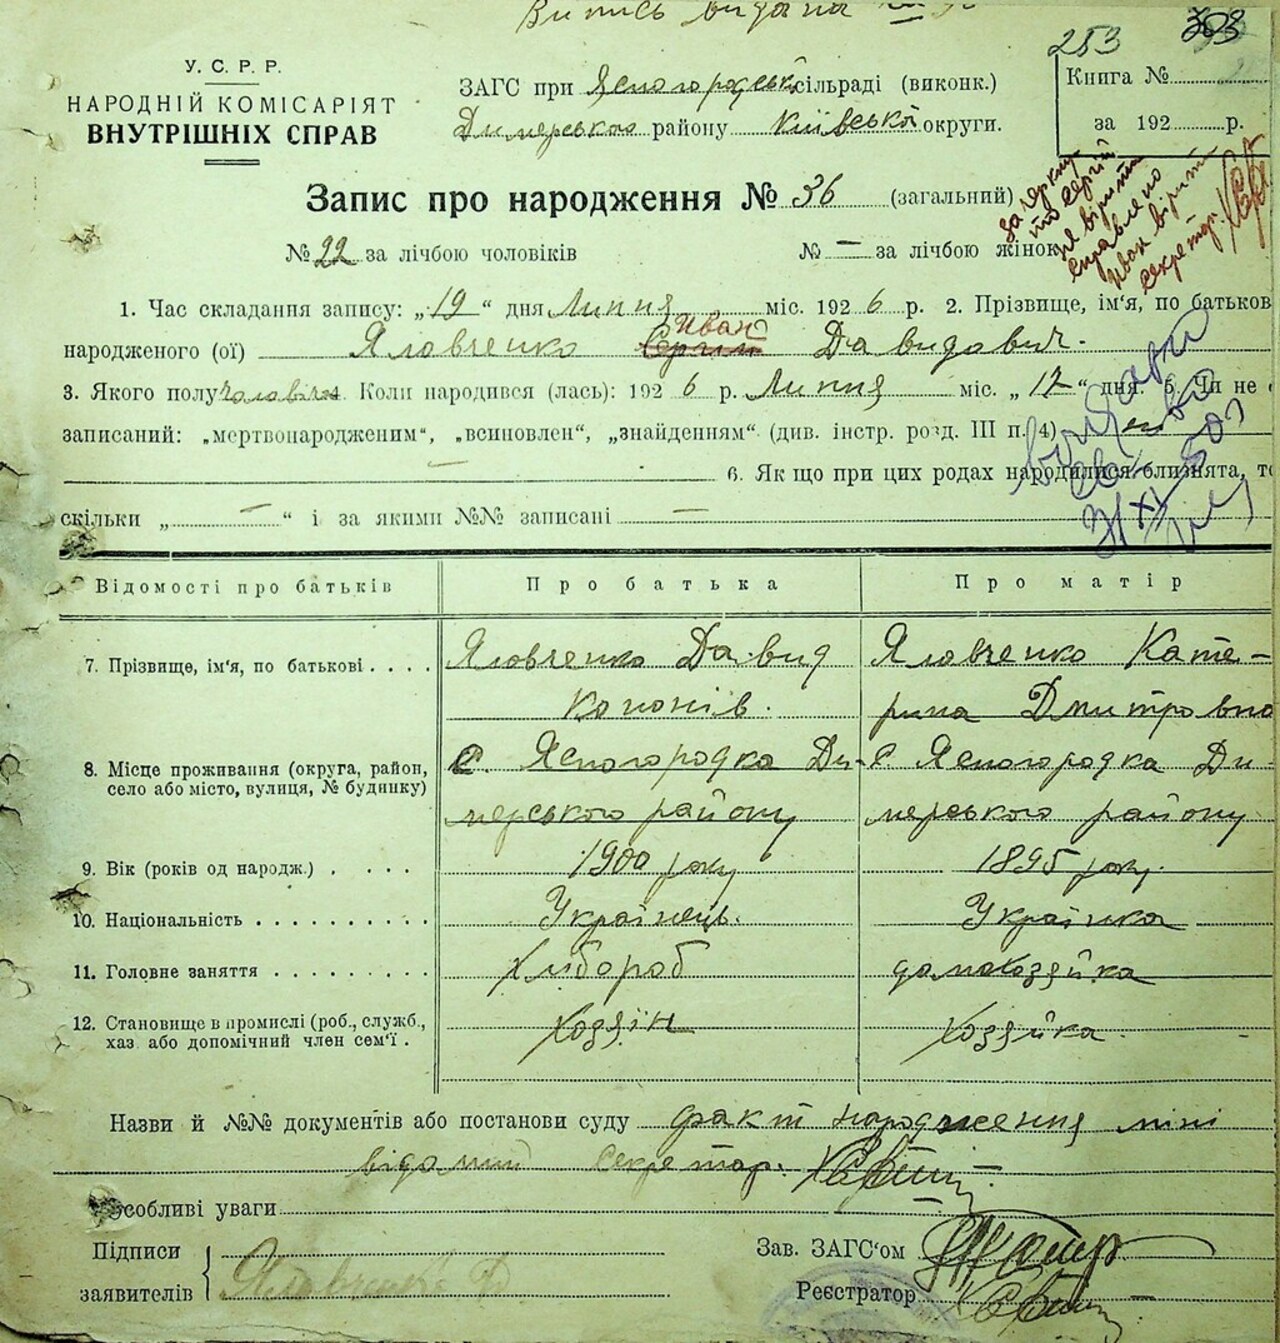 Випись видана
253
У. С. Р. Р.
НАРОДНІЙ КОМІСАРІЯТ
ВНУТРІШНІХ СПРАВ
ЗАГС при Ясногородські сільраді (виконк.)
Димерського району Київської округи.
Книга №
за 192 р.
Запис про народження № 36 (загальний)
№ 22 за лічбою чоловіків № — за лічбою жінок
закреслено Сергій
не вірити
справлено
Иван вірити
секретар.
1. Час складання запису: „19“ дня Липня міс. 1926 р. 2. Прізвище, ім'я, по батькові
Иван
народженого (ої) Яловченко Сергій Давидович.
3. Якого полу чоловіча 4. Коли народився (лась): 1926 р. Липня міс. „17“ дня. 5. Чи не
записаний: „мертвонародженим“, „всиновлен“, „знайденням“ (див. інстр. розд. III п. 4)
— 6. Як що при цих родах народилися близнята, то
скільки „ — “ і за якими №№ записані —
Відомості про батьків Про батька Про матір
7. Прізвище, ім'я, по батькові . . . . Яловченко Давид Яловченко Кате-
Кононів. рина Дмитровна
8. Місце проживання (округа, район, с. Ясногородка Ди- с. Ясногородка Ди-
село або місто, вулиця, № будинку) мерського району мерського району
9. Вік (років од народж.) . . . . 1900 року 1895 року.
10. Національність . . . . . . . . . . Українець. Українка
11. Головне заняття . . . . . . . . . Хлібороб домохозяйка
12. Становище в промислі (роб., служб., Хозяїн Хозяйка.
хаз. або допомічний член сем'ї .
Назви й №№ документів або постанови суду факт народження міні
відомий секретар.
Особливі уваги
Підписи
заявителів Яловченко Д
Зав. ЗАГС'ом
Реєстратор